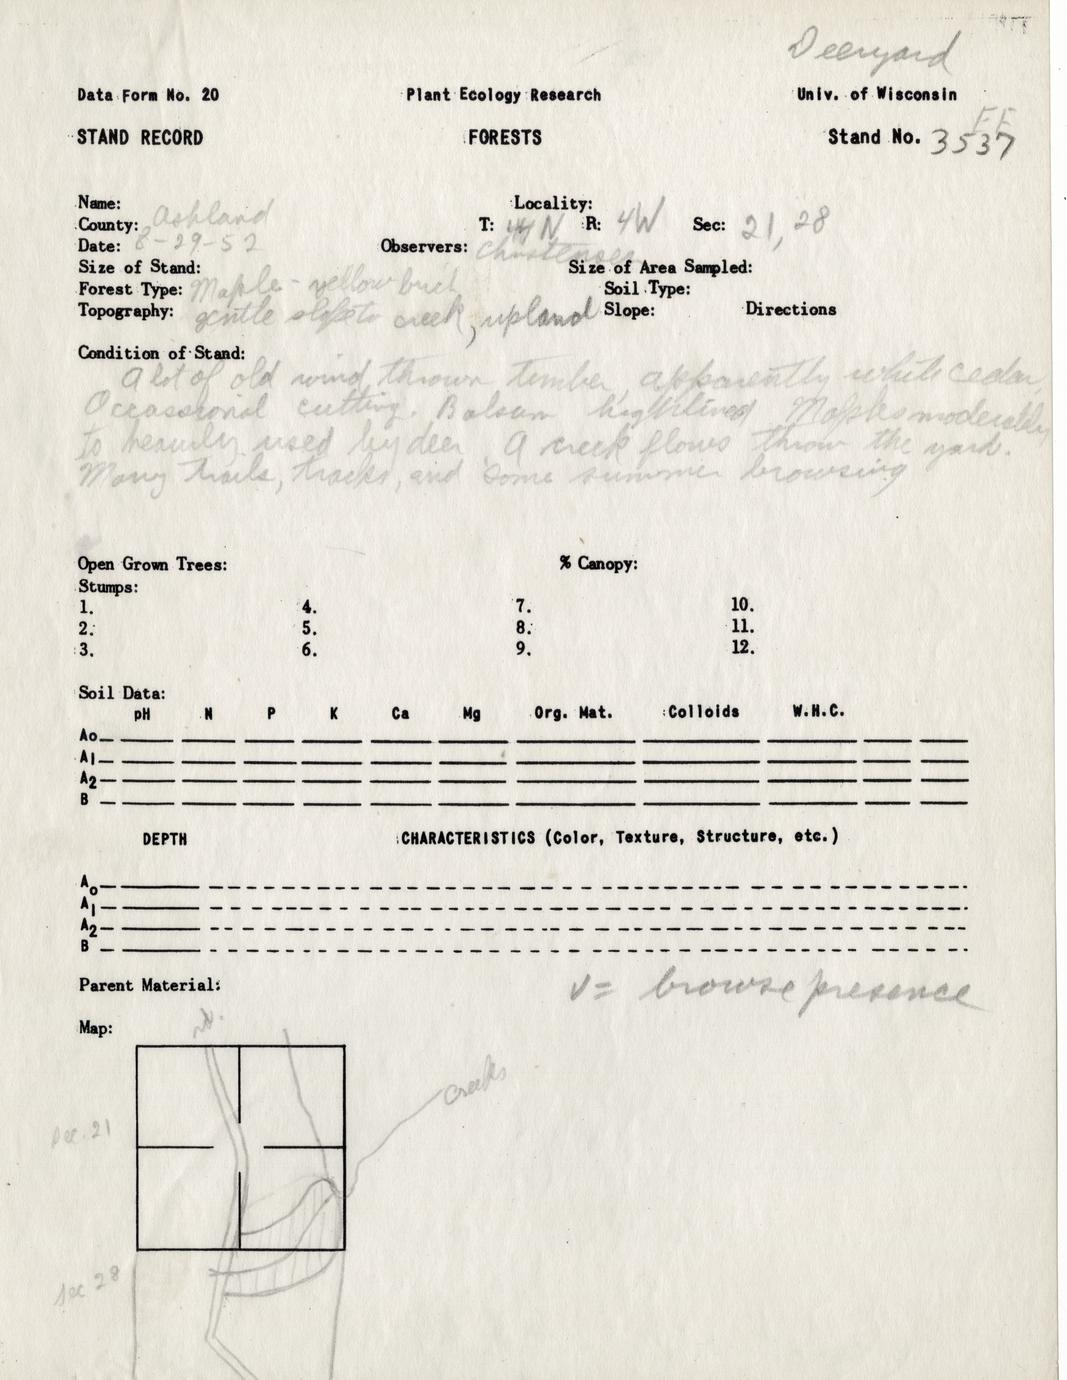 Deeryard
Data Form No. 20 Plant Ecology Research Univ. of Wisconsin
FF
STAND RECORD FORESTS Stand No. 3537
Name: Locality:
County: Ashland T: 44N R: 4W Sec: 21, 28
Date: 8-29-52 Observers: Christensen
Size of Stand: Size of Area Sampled:
Forest Type: Maple - yellow birch Soil Type:
Topography: gentle slope to creek, upland Slope: Directions
Condition of Stand:
A lot of old wind thrown timber, apparently white cedar,
Occassional cutting. Balsam highlined Maples moderately
to heavily used by deer. A creek flows throw the yard.
Many trails, tracks, and some summer browsing
Open Grown Trees: % Canopy:
Stumps:
1. 4. 7. 10.
2. 5. 8. 11.
3. 6. 9. 12.
Soil Data:
pH N P K Ca Mg Org. Mat. Colloids W.H.C.
Ao
A1
A2
B
DEPTH CHARACTERISTICS (Color, Texture, Structure, etc.)
Ao
A1
A2
B
Parent Material: v = browse presence
Map: rd.
creeks
Sec. 21
Sec 28